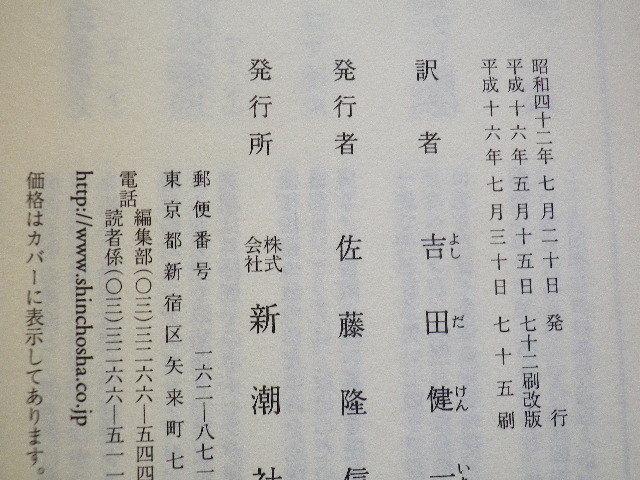 昭和四十二年七月二十日発行
平成十六年五月十五日七十二刷改版
平成十六年七月三十日七十五刷
訳者 吉田健
よし だ けん いち
発行者 佐藤隆信
発行所 株式会社 新潮社
郵便番号 一六二―八七一
東京都新宿区矢来町七
電話 編集部(〇三)三二六六―五四四
読者係(〇三)三二六六―五一一
http://www.shinchosha.co.jp
価格はカバーに表示してあります。